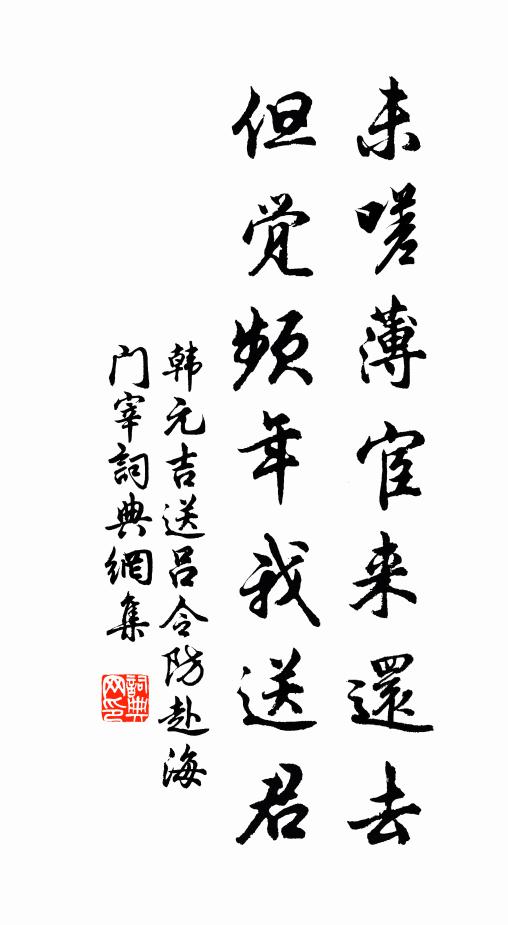 未嗟薄宦来還去
但觉频年我送君
韩元吉送吕令防赴海
门宰詞典網集
詞典
网印